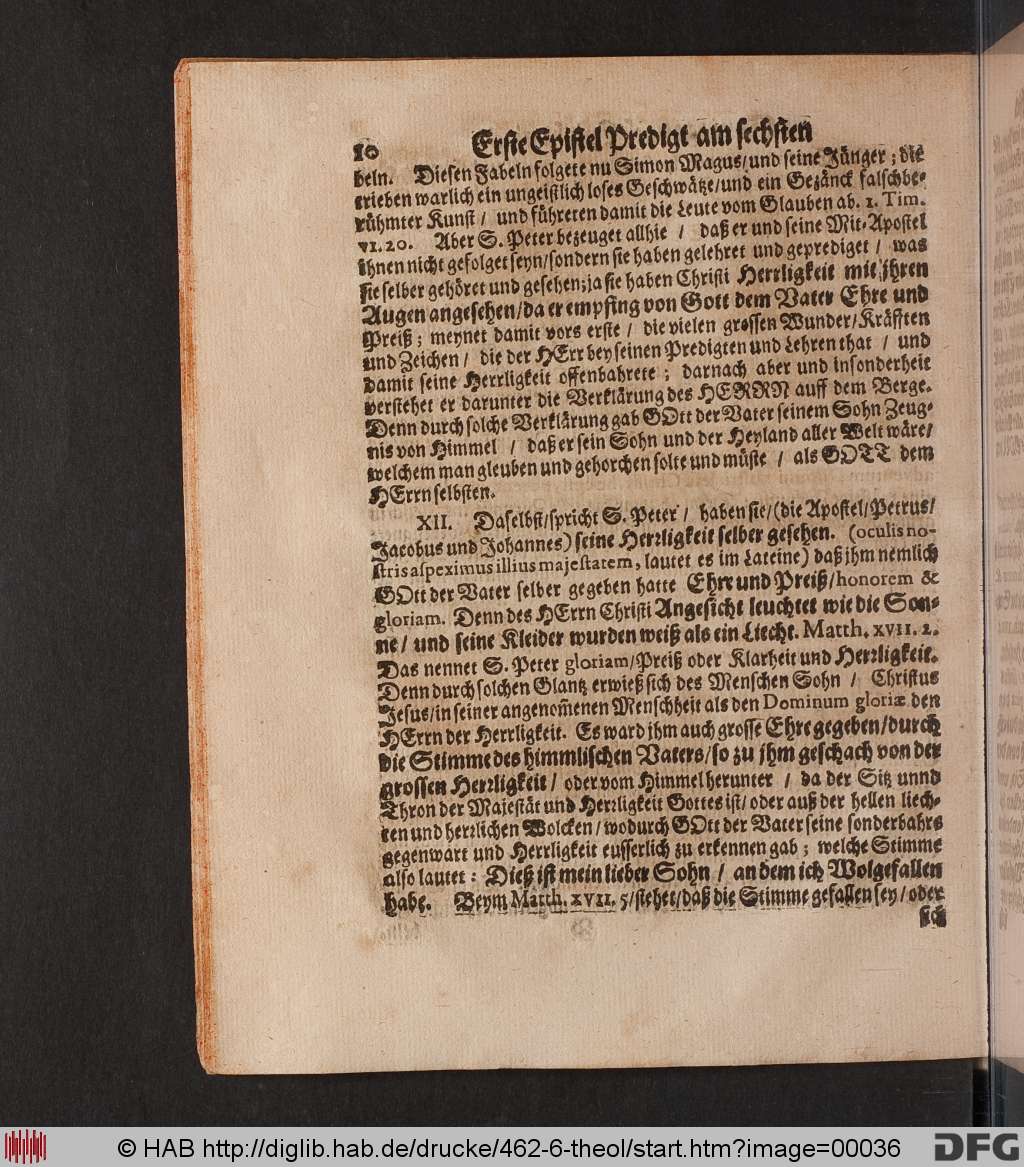 10 Erste Epistel Predigt am sechsten
beln. Diesen Fabeln folgete nu Simon Magus/ und seine Jünger; die
trieben warlich ein ungeistlich loses Geschwätze/ und ein Gezänck falschbe-
rühmter Kunst/ und führeten damit die Leute vom Glauben ab. 1. Tim.
VI. 20. Aber S. Peter bezeuget allhie / daß er und seine Mit-Apostel
ihnen nicht gefolget seyn/ sondern sie haben gelehret und geprediget / was
sie selber gehöret und gesehen; ja sie haben Christi Herrligkeit mit ihren
Augen angesehen/ da er empfing von Gott dem Vater Ehre und
Preiß; meynet damit vors erste / die vielen grossen Wunder/ Kräfften
und Zeichen/ die der HErr bey seinen Predigten und Lehren that / und
damit seine Herrligkeit offenbahrete; darnach aber und insonderheit
verstehet er darunter die Verklärung des HERRN auff dem Berge.
Denn durch solche Verklärung gab GOtt der Vater seinem Sohn Zeug-
nis von Himmel / daß er sein Sohn und der Heyland aller Welt wäre/
welchem man gleuben und gehorchen solte und müste / als GOTT dem
HErrn selbsten.
XII. Daselbst/ spricht S. Peter / haben sie/ (die Apostel/ Petrus/
Jacobus und Johannes) seine Herrligkeit selber gesehen. (oculis no-
stris aspeximus illius majestatem, lautet es im Lateine) daß ihm nemlich
GOtt der Vater selber gegeben hatte Ehre und Preiß/ honorem &
gloriam. Denn des HErrn Christi Angesicht leuchtet wie die Son-
ne/ und seine Kleider wurden weiß als ein Liecht. Matth. XVII. 2.
Das nennet S. Peter gloriam/ Preiß oder Klarheit und Herrligkeit.
Denn durch solchen Glantz erwieß sich des Menschen Sohn / Christus
Jesus/ in seiner angenom̃enen Menschheit als den Dominum gloriæ den
HErrn der Herrligkeit. Es ward ihm auch grosse Ehre gegeben/ durch
die Stimme des himmlischen Vaters/ so zu jhm geschach von der
grossen Herrligkeit/ oder vom Himmel herunter / da der Sitz unnd
Thron der Majestät und Herrligkeit Gottes ist/ oder auß der hellen liech-
ten und herrlichen Wolcken/ wodurch GOtt der Vater seine sonderbahre
gegenwart und Herrligkeit eusserlich zu erkennen gab; welche Stimme
also lautet: Dieß ist mein lieber Sohn / an dem ich Wolgefallen
habe. Beym Matth. XVII. 5/ stehet/ daß die Stimme gefallen sey/ oder
sich
© HAB http://diglib.hab.de/drucke/462-6-theol/start.htm?image=00036
DFG